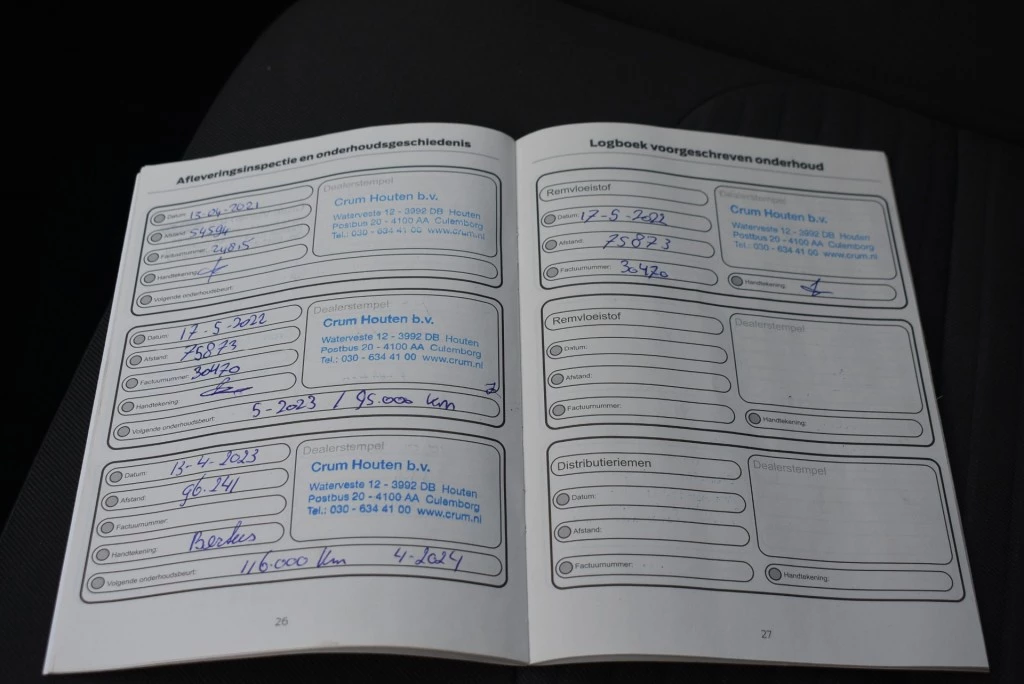 Afleveringsinspectie en onderhoudsgeschiedenis
Datum: 13-04-2021
Afstand: 54594
Factuurnummer: 24815
Handtekening:
Volgende onderhoudsbeurt:
Dealerstempel
Crum Houten b.v.
Waterveste 12 - 3992 DB Houten
Postbus 20 - 4100 AA Culemborg
Tel.: 030 - 634 41 00 www.crum.nl
Datum: 17-5-2022
Afstand: 75873
Factuurnummer: 30470
Handtekening:
Volgende onderhoudsbeurt: 5-2023 / 95.000 km
Dealerstempel
Crum Houten b.v.
Waterveste 12 - 3992 DB Houten
Postbus 20 - 4100 AA Culemborg
Tel.: 030 - 634 41 00 www.crum.nl
Datum: 13-4-2023
Afstand: 96.241
Factuurnummer:
Handtekening: Bertus
Volgende onderhoudsbeurt: 116.000 km 4-2024
Dealerstempel
Crum Houten b.v.
Waterveste 12 - 3992 DB Houten
Postbus 20 - 4100 AA Culemborg
Tel.: 030 - 634 41 00 www.crum.nl
26
Logboek voorgeschreven onderhoud
Remvloeistof
Datum: 17-5-2022
Afstand: 75873
Factuurnummer: 30470
Dealerstempel
Crum Houten b.v.
Waterveste 12 - 3992 DB Houten
Postbus 20 - 4100 AA Culemborg
Tel.: 030 - 634 41 00 www.crum.nl
Handtekening:
Remvloeistof
Datum:
Afstand:
Factuurnummer:
Dealerstempel
Handtekening:
Distributieriemen
Datum:
Afstand:
Factuurnummer:
Dealerstempel
Handtekening:
27